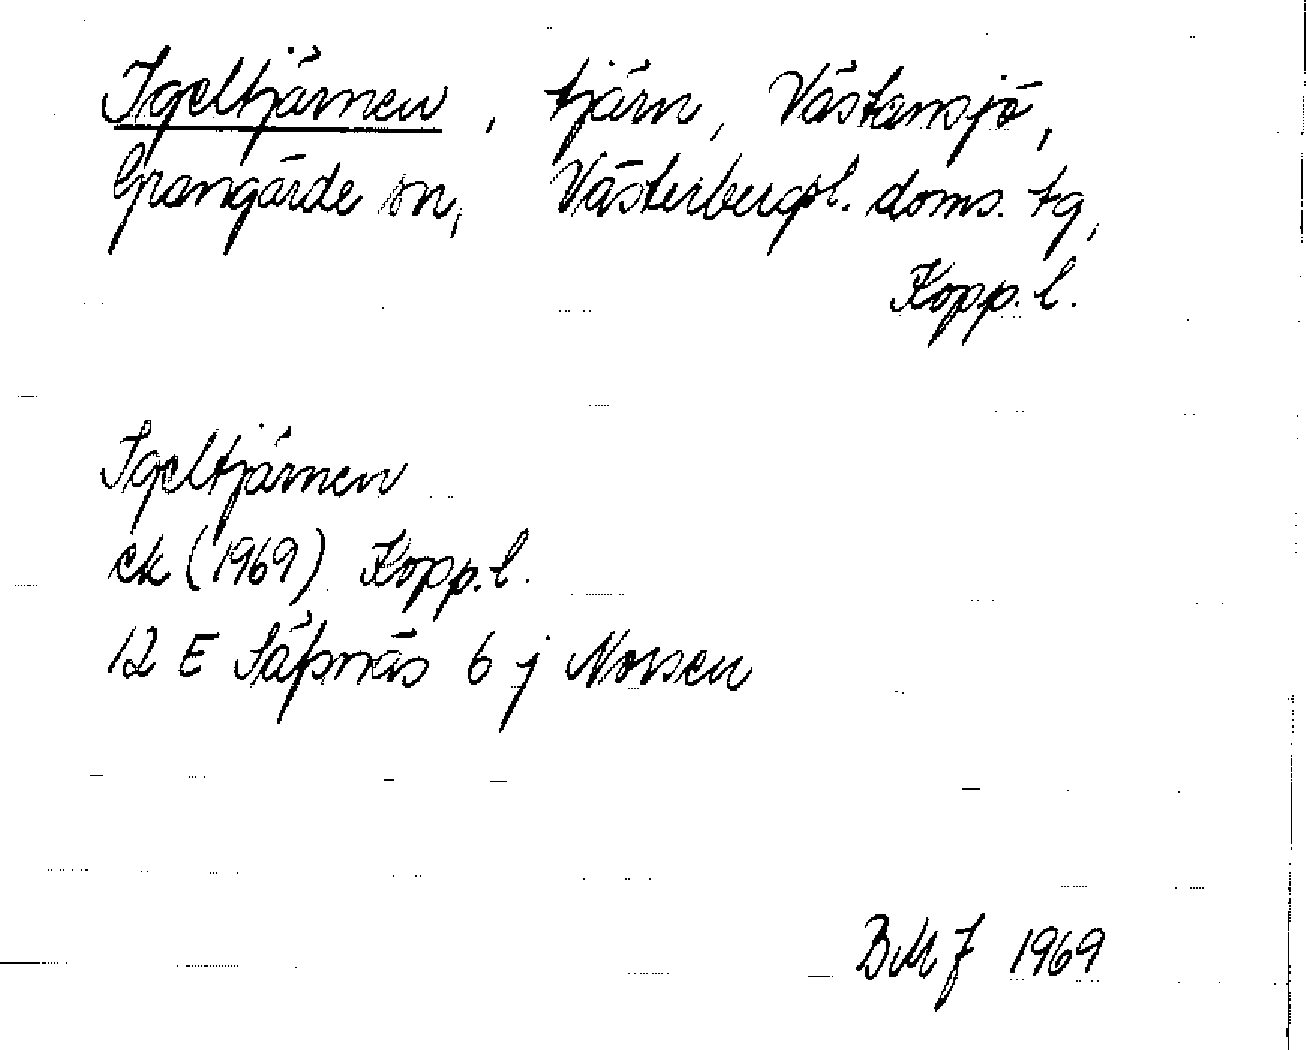 Igeltjärnen, tjärn, Västansjö,
Grangärde sn, Västerbergsl. doms. tg,
Kopp. l.
Igeltjärnen
ek (1969) Kopp. l.
12 E Säfsnäs 6 j Norsen
BMJ 1969